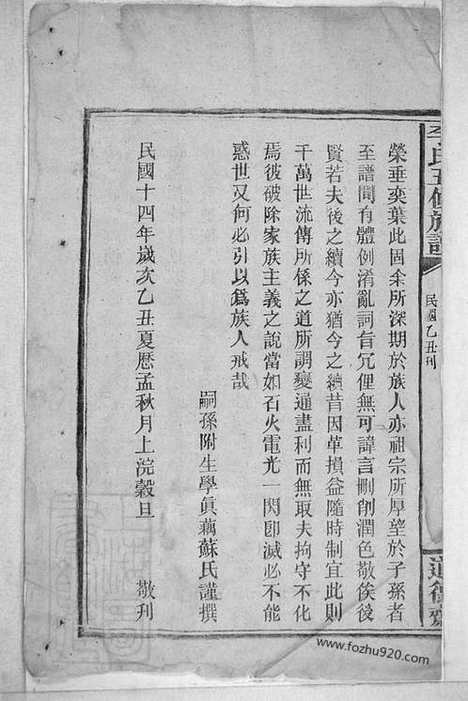 氏五修族譜
民國乙丑刊
道
齋
榮垂奕葉此固余所深期於族人亦祖宗所厚望於子孫者
至譜間有體例淆亂詞旨冗俚無可諱言刪削潤色敬俟後
賢若夫後之續今亦猶今之續昔因革損益隨時制宜此則
千萬世流傳所係之道所謂變通盡利而無取夫拘守不化
焉彼破除家族主義之說當如石火電光一閃卽滅必不能
惑世又何必引以爲族人戒哉
嗣孫附生學真藕蘇氏謹撰
民國十四年歲次乙丑夏歷孟秋月上浣穀旦
敬刊
www.fozhu920.com